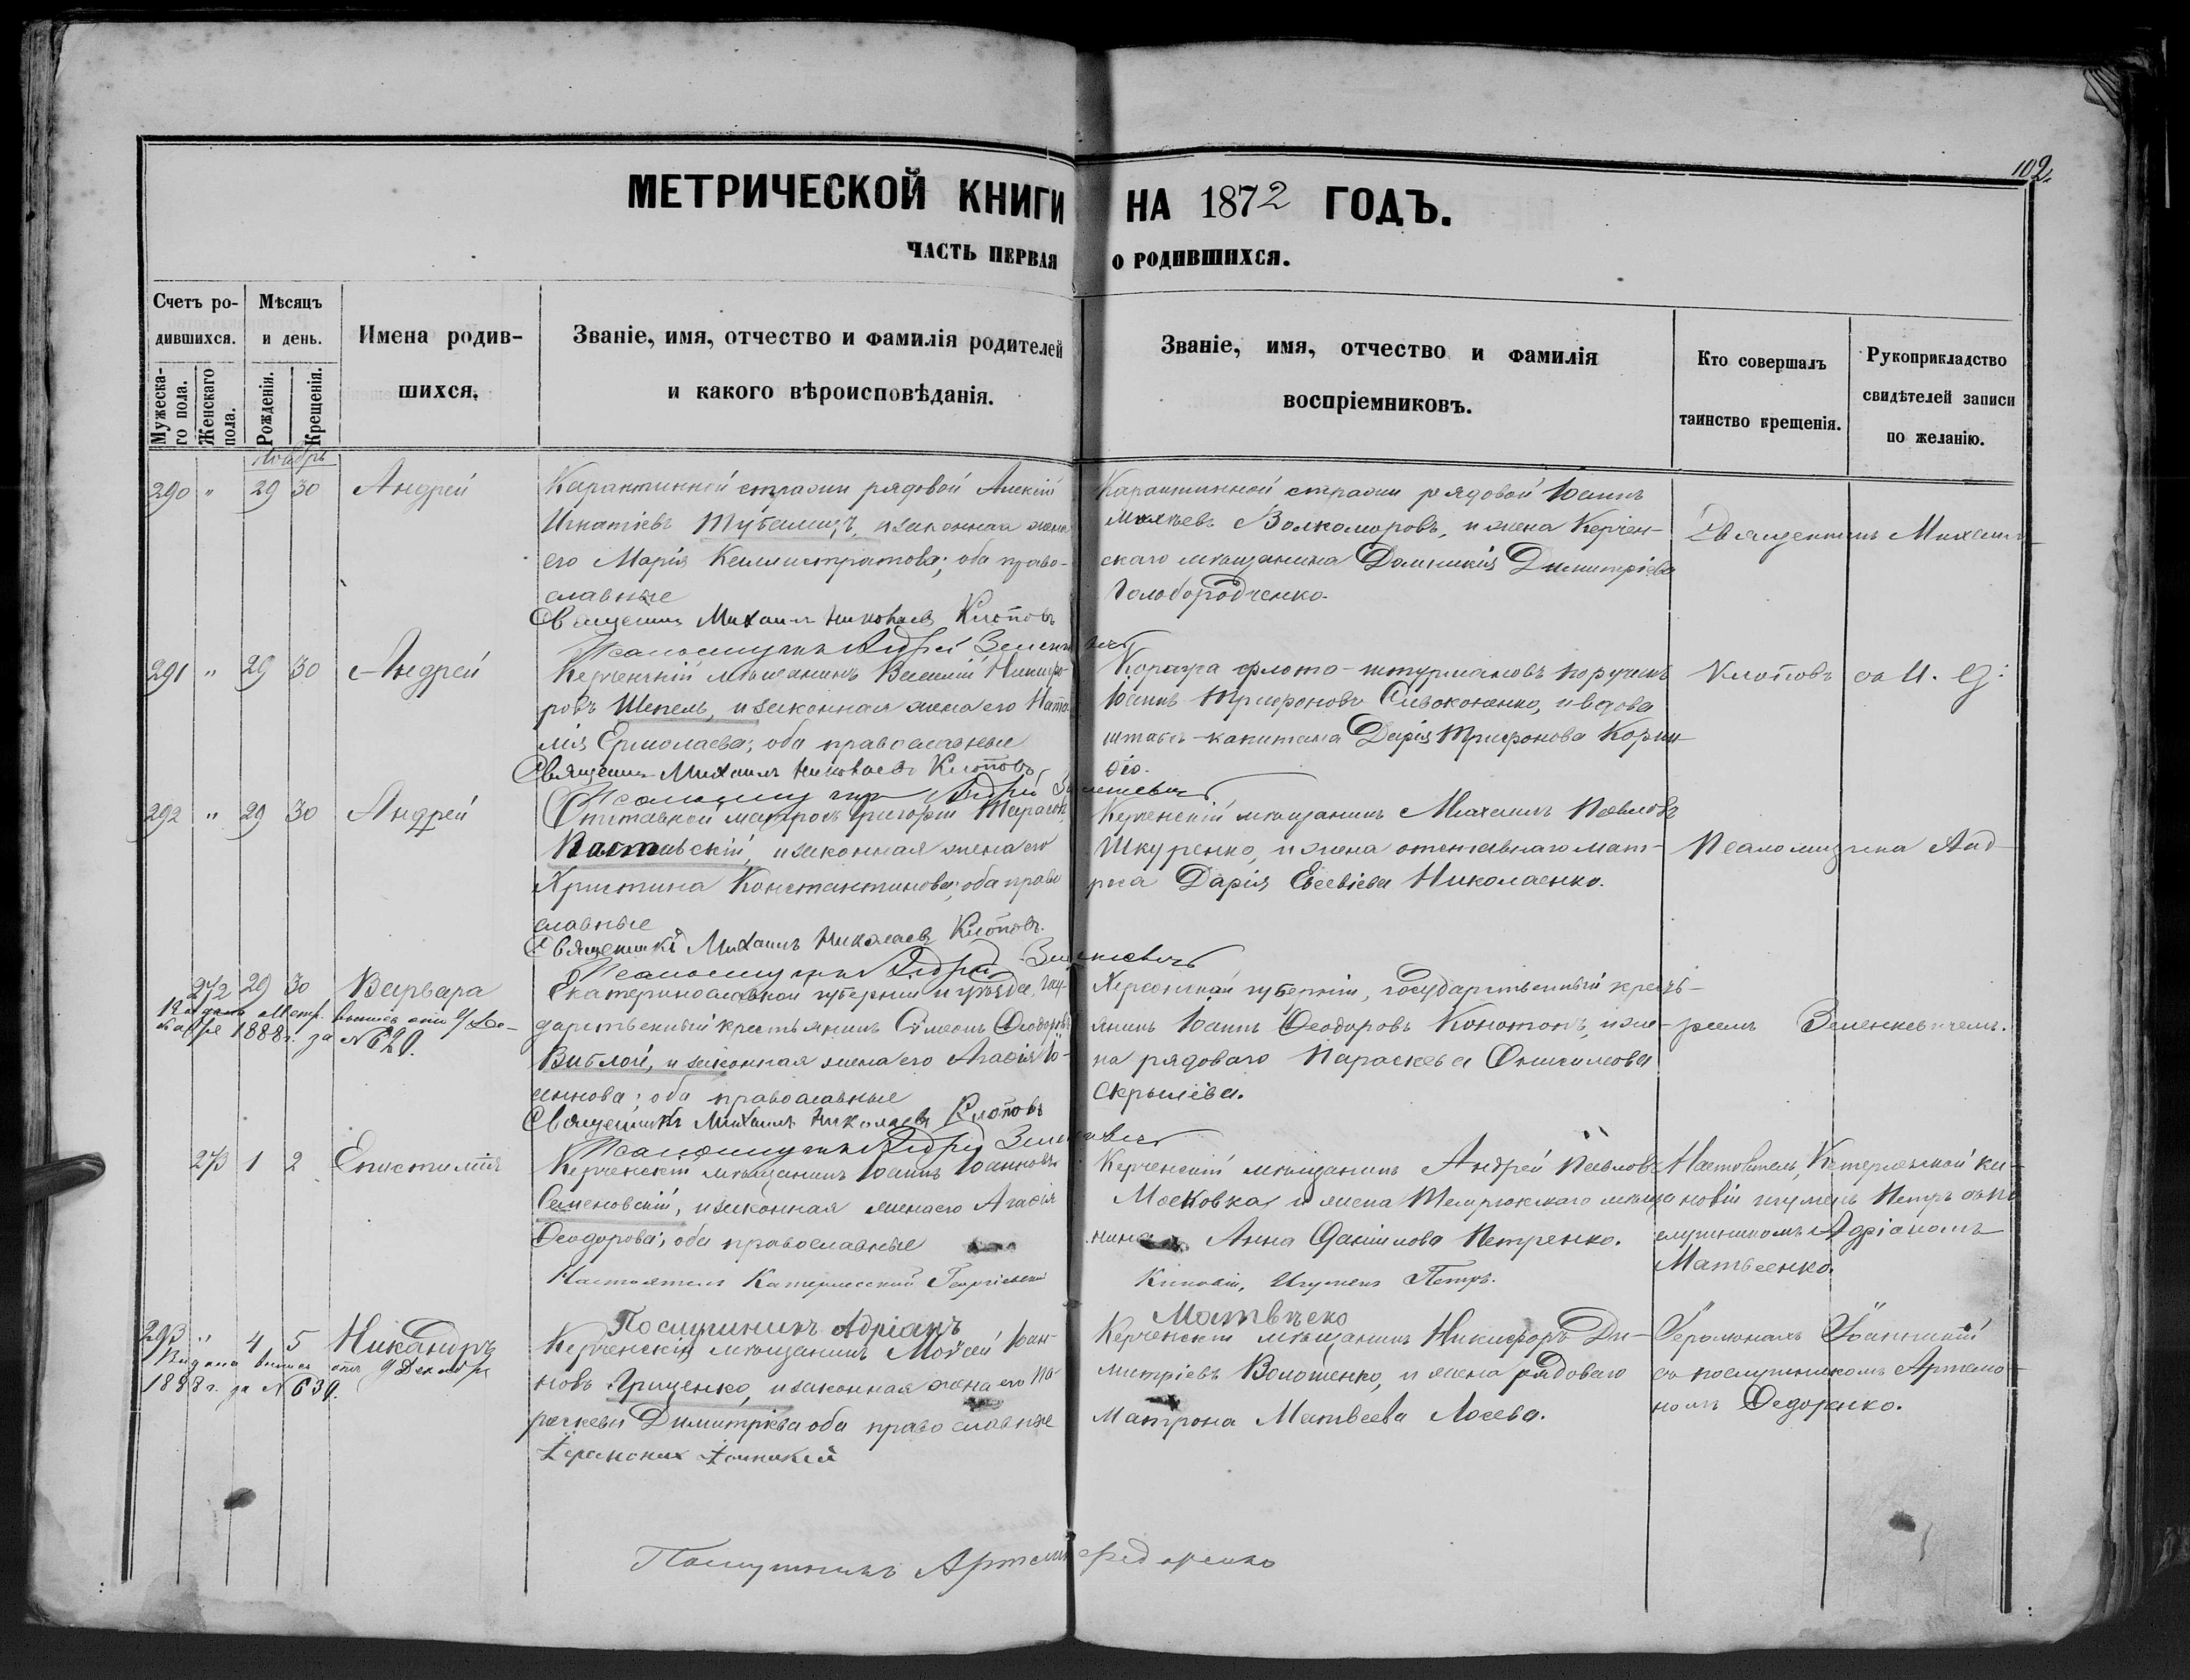 102.
МЕТРИЧЕСКОЙ КНИГИ НА 1872 ГОДЪ.
ЧАСТЬ ПЕРВАЯ О РОДИВШИХСЯ.
Счетъ ро-
дившихся.
Мужеска-
го пола.
Женскаго
пола.
Мѣсяцъ
и день.
Рожденія.
Крещенія.
Имена родив-
шихся.
Званіе, имя, отчество и фамилія родителей
и какого вѣроисповѣданія.
Званіе, имя, отчество и фамилія
воспріемниковъ.
Кто совершалъ
таинство крещенія.
Рукоприкладство
свидѣтелей записи
по желанію.
Ноябрь
290 " 29 30 Андрей
Карантинной стражи рядовой Алексій
Игнатіевъ, изаконная жена
его Марія Каллистратова; оба право-
славные
Священникъ Михаилъ Николаевъ Клоповъ
Псаломщикъ Андрей Зеленкевичъ
Карантинной стражи рядовой Іоаннъ
Волкоморовъ, и жена Керчен-
скаго мѣщанина Домникія Димитріева
Голобородченко.
Священникъ Михаилъ
291 " 29 30 Андрей
Керченскій мѣщанинъ Василій Никифо-
ровъ Шепель, изаконная жена его Ната-
лія Ермолаева; оба православные
Священникъ Михаилъ Николаевъ Клоповъ
Псаломщикъ Андрей Зеленкевичъ
Корпуса флота-штурмановъ поручикъ
Іоаннъ Трифоновъ Сивоконенко, и вдова
штабсъ-капитана Дарія Трифонова
Клоповъ съ И. д:
292 " 29 30 Андрей
Отставной матросъ Григорій Тарасовъ
изаконная жена его
Христина Константинова; оба право
славные
Священникъ Михаилъ Николаевъ Клоповъ.
Псаломщикъ Андрей Зеленкевичъ
Керченскій мѣщанинъ Михаилъ Павловъ
Шкуренко, и жена отставнаго мат-
роса Дарія Евсевіева Николаенко.
Псаломщика Анд-
272 29 30 Варвара
Выдана Метр. выпись отъ 9/ Де-
кабря 1888 г. за № 629.
Екатеринославской губерніи и уѣзда, госу-
дарственный крестьянинъ Сѵмеонъ Ѳеодоровъ
Вивлой, изаконная жена его Агафія Іо-
аннова; оба православные
Священникъ Михаилъ Николаевъ Клоповъ
Псаломщикъ Андрей Зеленкевичъ
Херсонской губерніи, государственный кресть-
янинъ Іоаннъ Ѳеодоровъ Конотопъ, и же-
на рядоваго Параскева Онисимова
Скрылева.
реемъ Зеленкевичемъ.
273 1 2 Епистимія
Керченскій мѣщанинъ Іоаннъ Іоанновъ
Семеновскій, изаконная жена его Агафія
Ѳеодорова; оба православные
Настоятель Катерлесской Георгіевской
Киновіи, Игуменъ Петръ.
Послушникъ Адріанъ Матвѣенко
Керченскій мѣщанинъ Андрей Павловъ
Московка, и жена Темрюкскаго мѣща
нина Анна Даніилова Петренко.
Настоятель, Катерлезской ки-
новіи игуменъ Петръ съ по
слушникомъ Адріаномъ
Матвеенко.
293 " 4 5 Никандръ
Выдана выпись отъ 9 Декабря
1888 г. за № 630.
Керченскій мѣщанинъ Моѵсей Іоан-
новъ Грищенко, изаконная жена его Па-
раскева Димитріева оба православные
Іеромонахъ Іоанникій
Керченскій мѣщанинъ Никифоръ Ди-
митріевъ Волошенко, и жена рядоваго
Матрона Матвеева Лосева.
Іеромонахъ Іоанникій
съ послушникомъ Артемо-
номъ Ѳедоренко.
Послушникъ Артемонъ Федоренко